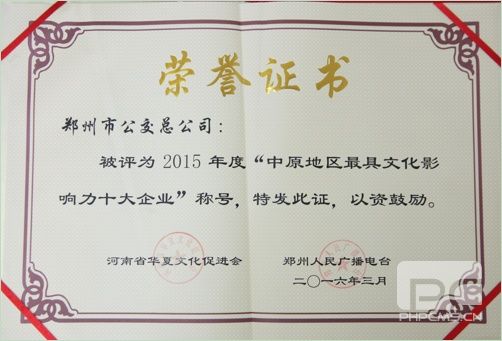 荣誉证书
郑州市公交总公司：
被评为 2015 年度“中原地区最具文化影
响力十大企业”称号，特发此证，以资鼓励。
河南省华夏文化促进会 郑州人民广播电台
二〇一六年三月
PHPCMS.CN